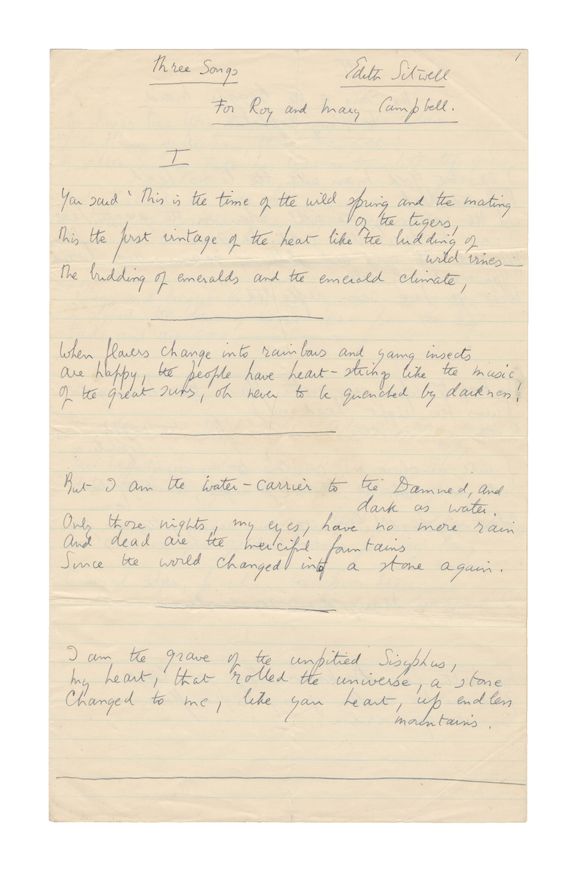 1
Three Songs Edith Sitwell
For Roy and Mary Campbell.
I
You said 'This is the time of the wild spring and the mating
of the tigers,
This the first vintage of the heart like the budding of
wild vines—
The budding of emeralds and the emerald climate,
When flowers change into rainbows and young insects
are happy, the people have heart-strings like the music
Of the great suns, oh never to be quenched by darkness!
But I am the water-carrier to the Damned, and
dark as water.
Only those nights, my eyes, have no more rain
And dead are the merciful fountains
Since the world changed into a stone again.
I am the grave of the unpitied Sisyphus,
My heart, that rolled the universe, a stone
Changed to me, like your heart, up endless
mountains.